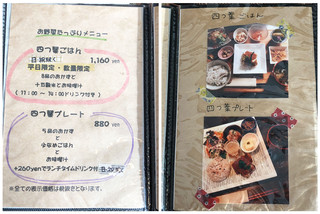 お野菜たっぷりメニュー
四つ葉ごはん
1,160 yen
平日限定・数量限定
5品のおかず
十五穀米とお味噌汁
(11:00 〜 14:00ドリンク付き)
四つ葉プレート
880 yen
5品のおかず
と
お味噌汁
+260yenでランチタイムドリンク付
※全ての表示価格は税抜きとなります。
四つ葉ごはん
四つ葉プレート